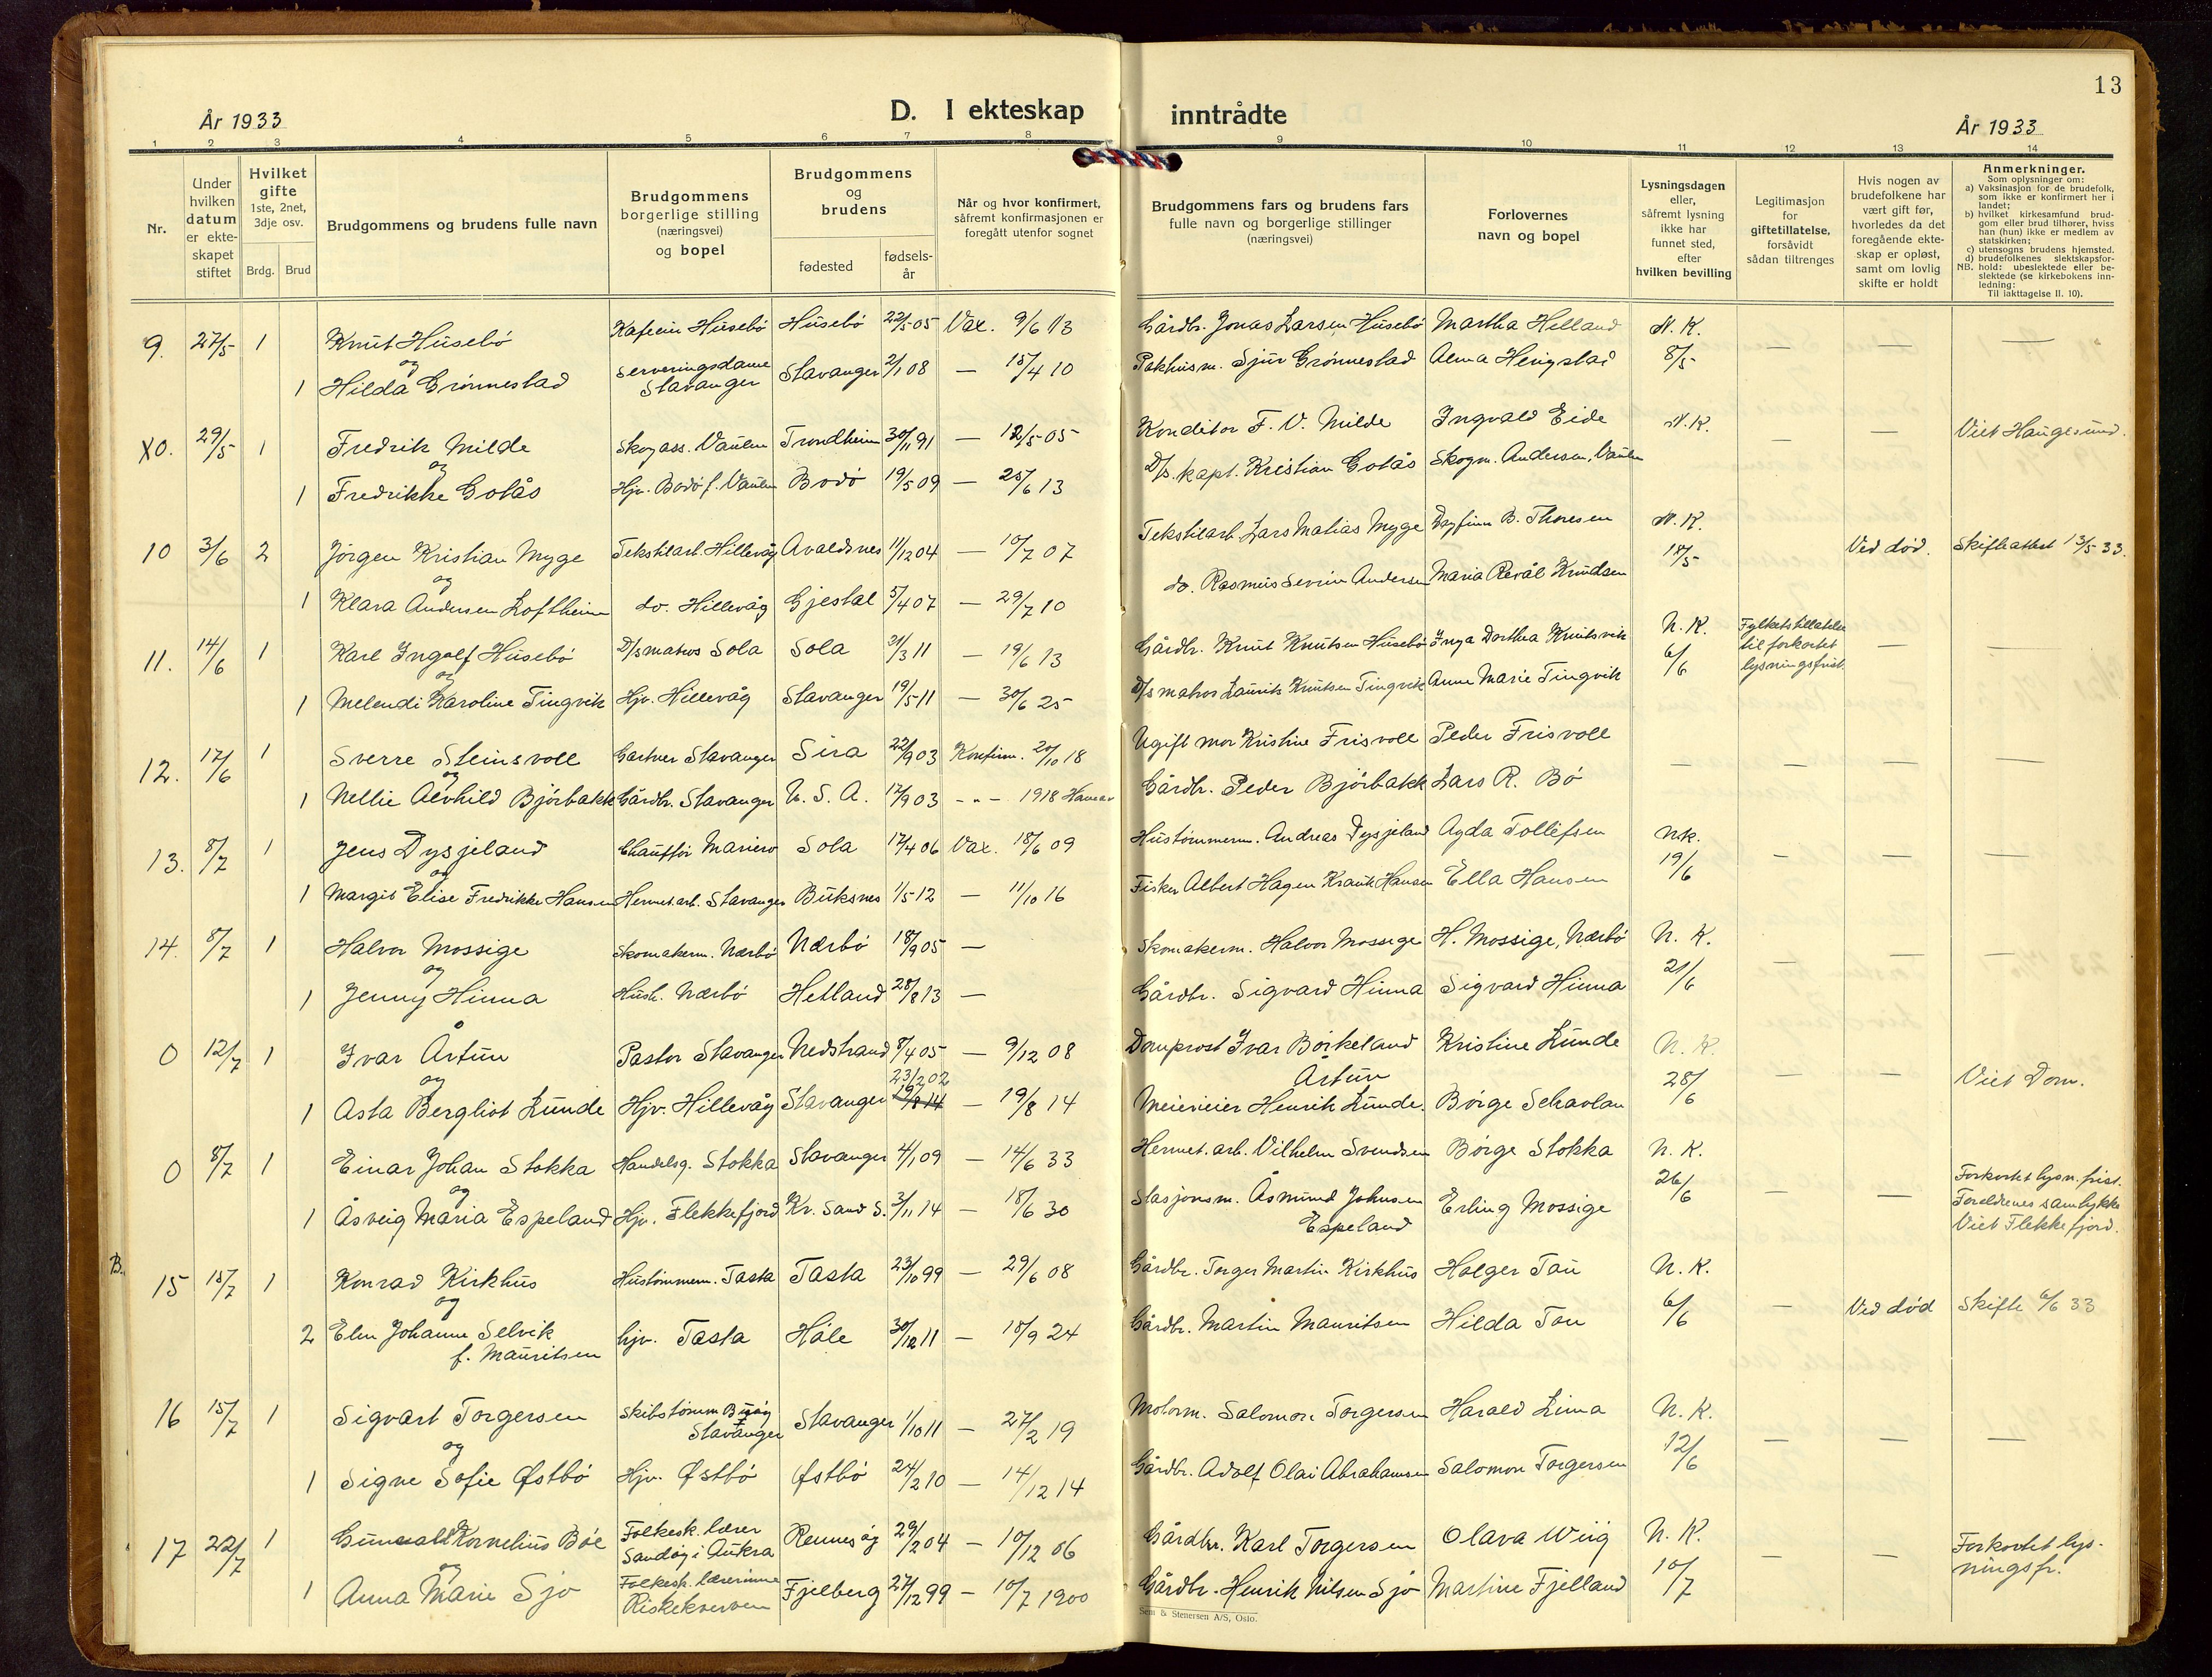 13
År 1933
D. I ekteskap inntrådte
År 1933
1 2 3 4 5 6 7 8 9 10 11 12 13 14
Nr.
Under hvilken datum er ekteskapet stiftet
Hvilket gifte 1ste, 2net, 3dje osv.
Brdg. Brud
Brudgommens og brudens fulle navn
Brudgommens borgerlige stilling (næringsvei) og bopel
Brudgommens og brudens
fødested
fødsels-år
Når og hvor konfirmert, såfremt konfirmasjonen er foregått utenfor sognet
Brudgommens fars og brudens fars fulle navn og borgerlige stillinger (næringsvei)
Forlovernes navn og bopel
Lysningsdagen eller, såfremt lysning ikke har funnet sted, efter hvilken bevilling
Legitimasjon for giftetillatelse, forsåvidt sådan tiltrenges
Hvis nogen av brudefolkene har vært gift før, hvorledes da det foregående ekteskap er opløst, samt om lovlig skifte er holdt
Anmerkninger.
Som oplysninger om:
a) Vaksinasjon for de brudefolk, som ikke er konfirmert her i landet;
b) hvilket kirkesamfund brudgom eller brud tilhører, hviss han (hun) ikke er medlem av statskirken;
c) utensogns brudens hjemsted.
d) brudefolkenes slektskapsforhold: ubeslektede eller beslektede (se kirkebokens innledning:
NB. Til iakttagelse II. 10).
9. 27/5 1 Knut Húsebö Kafeein Húsebö Húsebö 22/5 05 Vax. 9/6 13 Gårdbr. Jonas Larsen Húsebö Martha Helland N. K.
og
1 Hilda Grönnestad Serveringsdame Stavanger Stavanger 2/1 08 — 15/4 10 Pakhusm. Sjur Grönnestad Alma Hengstad 8/5 — — —
10. 29/5 1 Fredrik Milde Skogass. Vaulen Trondheim 30/11 91 — 12/5 05 Konditor F. V. Milde Ingvald Eide N. K. — — Viet Haugesund.
og
1 Fredrikke Gotås Hjv. Bodö f. Vaulen Bodö 19/5 09 — 25/6 13 D/s. kapt. Kristian Gotås Skogm. Andersen, Vaulen
10 3/6 2 Jörgen Kristian Myge Tekstilarb. Hillevåg Avaldsnes 11/12 04 — 10/7 07 Tekstilarb. Lars Matias Myge Dagfinn B. Thoresen N. K. Ved död. Skifteattest 13/5 33.
og
1 Klara Andersen Loftheim do. Hillevåg Gjestal 5/4 07 — 29/7 10 do. Rasmus Severin Andersen Maria Revål Knudsen 18/5
11. 14/6 1 Karl Ingolf Húsebö D/s matros Sola Sola 31/3 11 — 19/6 13 Gårdbr. Knut Knutsen Húsebö Inga Dorthea Knutsvik N. K. Fylketstillatelse til forkortet lysningsfrist — —
og
1 Melendi Karoline Tingvik Hjv. Hillevåg Stavanger 19/5 11 — 30/6 25 D/s matros Laurits Knutsen Tingvik Anne Marie Tingvik 6/6
12. 17/6 1 Sverre Steinsvoll Gartner Stavanger Sira 22/9 03 Konfirm. 20/10 18 Ugift mor Kristine Frisvoll Peder Frisvoll — — — —
og
1 Nellie Alvhild Björbakk Gårdbr. Stavanger U. S. A. 17/9 03 -"- 1918 Gårdbr. Peder Björbakk Lars R. Bö
13. 8/7 1 Jens Dysjeland Chaufför Mariero Sola 17/4 06 Vax. 18/6 09 Hustömmerm. Andreas Dysjeland Agda Tollefsen N. K.
og
1 Margit Elise Fredrikke Hansen Hermet.arb. Stavanger Buksnes 1/5 12 — 11/10 16 Fisker Albert Hagen Krantz Hansen Ella Hansen 19/6 — — —
14. 8/7 1 Halvor Mossige Skomakerm. Nærbö Nærbö 18/9 05 — Skomakerm. Halvor Mossige H. Mossige, Nærbö N. K.
og
1 Jenny Hinna Hush. Nærbö Hetland 28/8 13 — Gårdbr. Sigvard Hinna Sigvard Hinna 21/6 — — —
0 12/7 1 Ivar Årtun Pastor Stavanger Nedstrand 8/4 05 — 9/12 08 Domprost Ivar Börkeland Årtun Kristine Lunde N. K.
og
1 Asta Bergliot Lunde Hjv. Hillevåg Stavanger 23/2 02 19/8 14 — 19/8 14 Meierieier Henrik Lunde. Börge Schavlan 28/6 — — Viet Dom.
0 8/7 1 Einar Johan Stokka Handelsg. Stokka Stavanger 4/1 09 — 14/6 33 Hermet. arb. Vilhelm Svendsen Börge Stokka N. K.
og
1 Åsveig Maria Espeland Hjv. Flekkefjord Kr. Sand S. 3/11 14 — 18/6 30 Stasjonsm. Åsmund Johnsen Espeland Erling Mossige 26/6 — — Forkortet lysn. frist. Foreldrenes samtykke Viet Flekkefjord.
B.
15 15/7 1 Konrad Kirkhus Hustömmerm. Tasta Tasta 23/10 99 — 29/6 08 Gårdbr. Torger Martin Kirkhus Holger Tau N. K.
og
2 Elen Johanne Selvik f. Mauritsen hjv. Tasta Höle 30/12 11 — 18/9 24 Gårdbr. Martin Mauritsen Hilda Tau 6/6 — Ved död Skifte 6/6 33
16 15/7 1 Sigvart Torgersen Skibstömm Buöy Stavanger Stavanger 1/10 11 — 27/2 19 Motorm. Salomon Torgersen Harald Lima N. K.
og
1 Signe Sofie Østbö Hjv. Østbö Østbö 24/2 10 — 14/12 14 Gårdbr. Adolf Olai Abrahamsen Salomon Torgersen 12/6 — — —
17 22/7 1 Gunvald Kornelius Böe Folkesk. lærer Sandöy i Aukra Rennesöy 29/2 04 — 10/12 06 Gårdbr. Karl Torgersen Olava Wiig N. K.
og
1 Anna Marie Sjo Folkesk. lærerinne Riskekverven Fjelberg 27/12 99 — 10/7 1900 Gårdbr. Henrik Nilsen Sjo Martine Fjelland 10/7 — — Forkortet lysningsfr.
Sem & Stenersen A/S, Oslo.